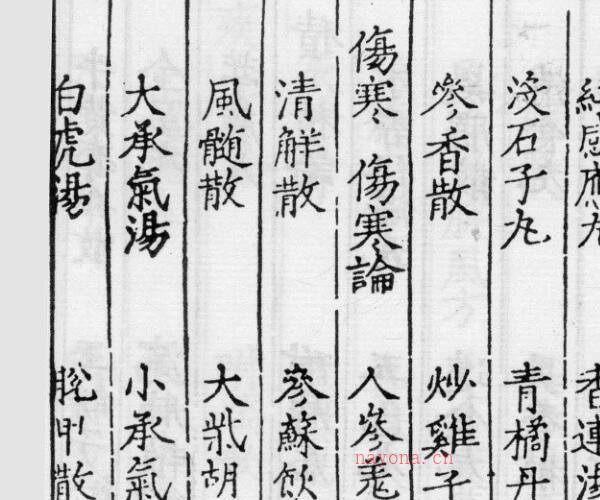 感應丸 香連湯
淺石子丸 青橘丹
參香散 炒雞子
傷寒 傷寒論 人參羌
清解散 參蘇飲
風髓散 大柴胡
大承氣湯 小承氣
白虎湯 脫甲散
nayona.cn